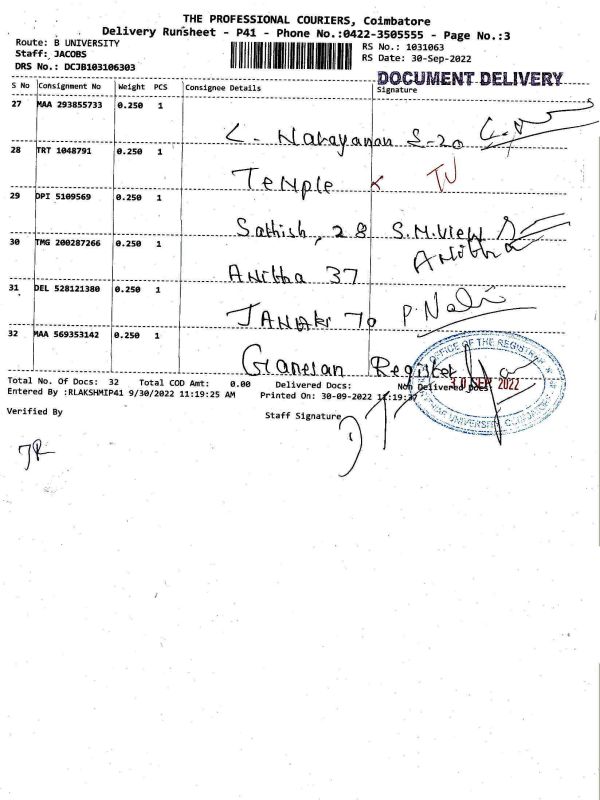 THE PROFESSIONAL COURIERS, Coimbatore
Delivery Runsheet - P41 - Phone No.:0422-3505555 - Page No.:3
Route: B UNIVERSITY
Staff: JACOBS
DRS No.: DCJB103106303
RS No.: 1031063
RS Date: 30-Sep-2022
DOCUMENT DELIVERY
S No Consignment No Weight PCS Consignee Details Signature
27 MAA 293855733 0.250 1
L. Narayanan S-20
28 TRT 1048791 0.250 1
Temple
29 DPI 5109569 0.250 1
Sathish, 28 S.M.View
30 TMG 200287266 0.250 1
Anitha 37 Anitha
31 DEL 528121380 0.250 1
JANAKI 70
32 MAA 569353142 0.250 1
Ganesan Register
OFFICE OF THE REGISTRAR
30 SEP 2022
Total No. Of Docs: 32 Total COD Amt: 0.00 Delivered Docs: Non Delivered Docs:
Entered By :RLAKSHMIP41 9/30/2022 11:19:25 AM Printed On: 30-09-2022 11:19:37
Verified By Staff Signature
JR